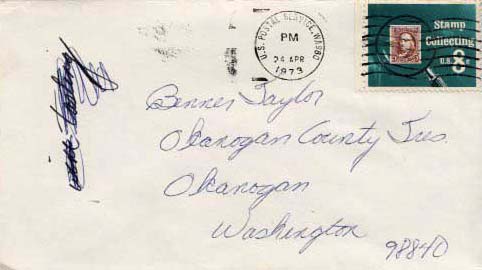 U.S. POSTAL SERVICE, WA 980
PM
24 APR
1973
Stamp
Collecting
U.S. 8c
Benner Taylor
Okanogan County Tres.
Okanogan
Washington
98840